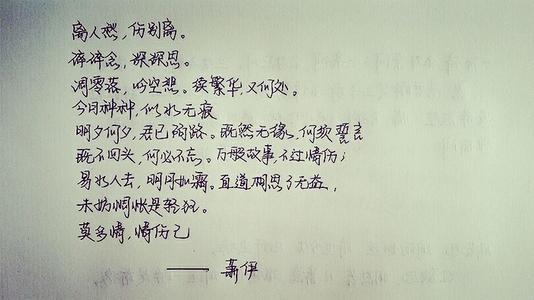 离人愁,伤别离。
碎碎念,深深思。
凋零落,吟空想。揉繁华又何处。
今日种种,似水无痕
明夕何夕,君已陌路。既然无缘,何须誓言
既不回头,何必不忘。万般故事,不过情伤;
易水人去,明月如霜。直道相思了无益,
未妨惆怅是轻狂。
莫多情,情伤己
—— 萧伊